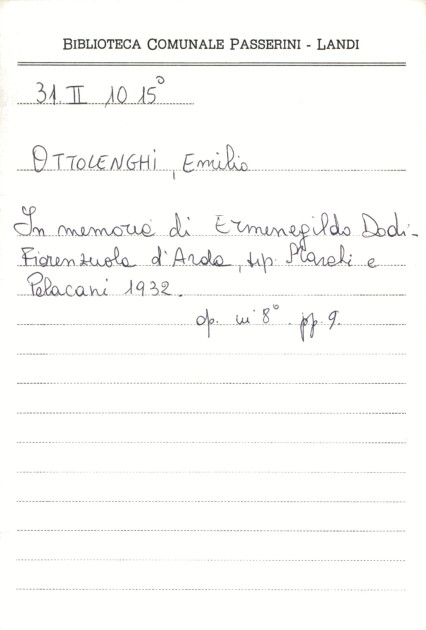 BIBLIOTECA COMUNALE PASSERINI - LANDI
31. II 10 15°
OTTOLENGHI, Emilio
In memoria di Ermenegildo Dodi -
Fiorenzuola d'Arda, tip. e
Pelacani 1932.
op. in 8°. pp. 9.